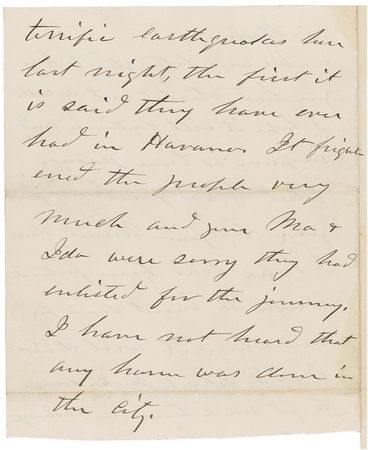 terrific earthquakes here
last night, the first it
is said they have ever
had in Havana. It fright
ened the people very
much and your Ma &
Ida were sorry they had
enlisted for the journey.
I have not heard that
any harm was done in
the city.